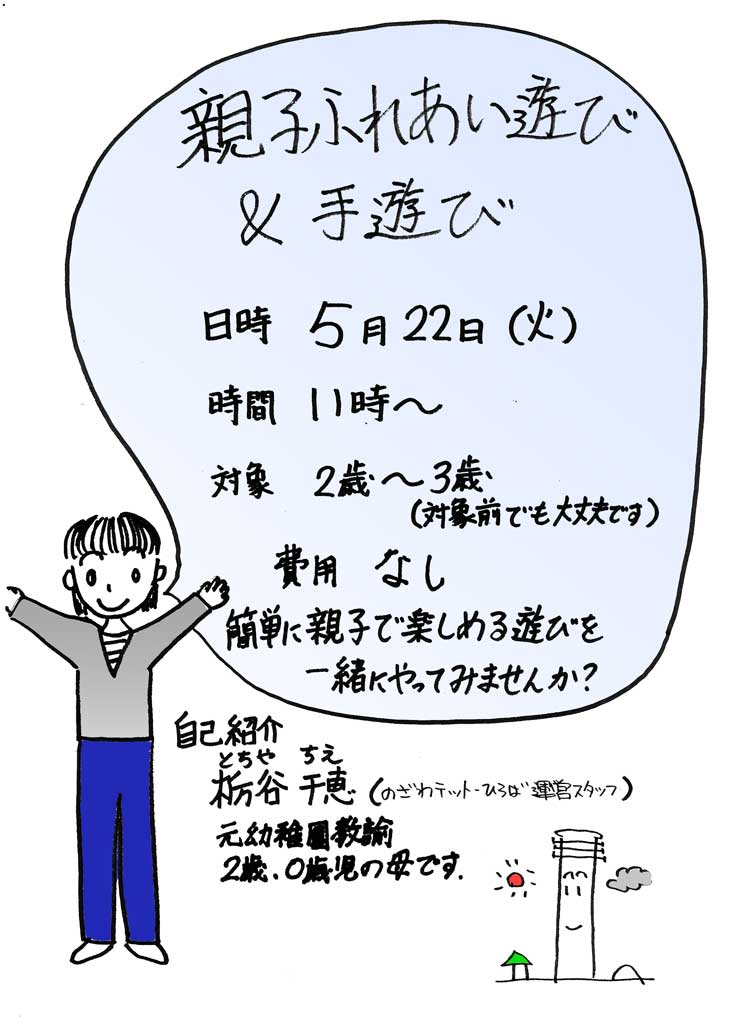 親子ふれあい遊び
& 手遊び
日時 5月22日(火)
時間 11時〜
対象 2歳〜3歳
(対象前でも大丈夫です)
費用 なし
簡単に親子で楽しめる遊びを
一緒にやってみませんか?
自己紹介
とちや ちえ
栃谷 千恵 (のざわテットーひろば 運営スタッフ)
元幼稚園教諭
2歳、0歳児の母です.